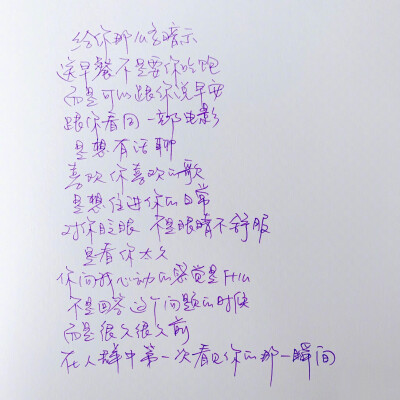 给你那么多暗示
送早餐不是要你吃饱
而是可以跟你说早安
跟你看同一部电影
是想有话聊
喜欢你喜欢的歌
是想住进你的日常
对你眨眼 不是眼睛不舒服
是看你太久
你问我心动的感觉是什么
不是回答这个问题的时候
而是很久很久前
在人群中第一次看见你的那一瞬间